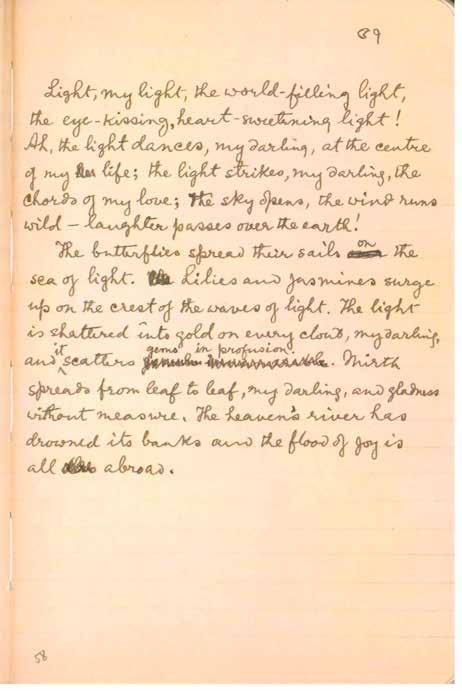 89
Light, my light, the world-filling light,
the eye-kissing, heart-sweetening light!
Ah, the light dances, my darling, at the centre
of my life; the light strikes, my darling, the
chords of my love; the sky opens, the wind runs
wild – laughter passes over the earth!
The butterflies spread their sails on the
sea of light. Lilies and jasmines surge
up on the crest of the waves of light. The light
is shattered into gold on every cloud, my darling,
and it scatters gems in profusion. Mirth
spreads from leaf to leaf, my darling, and gladness
without measure. The heaven's river has
drowned its banks and the flood of joy is
all abroad.
58